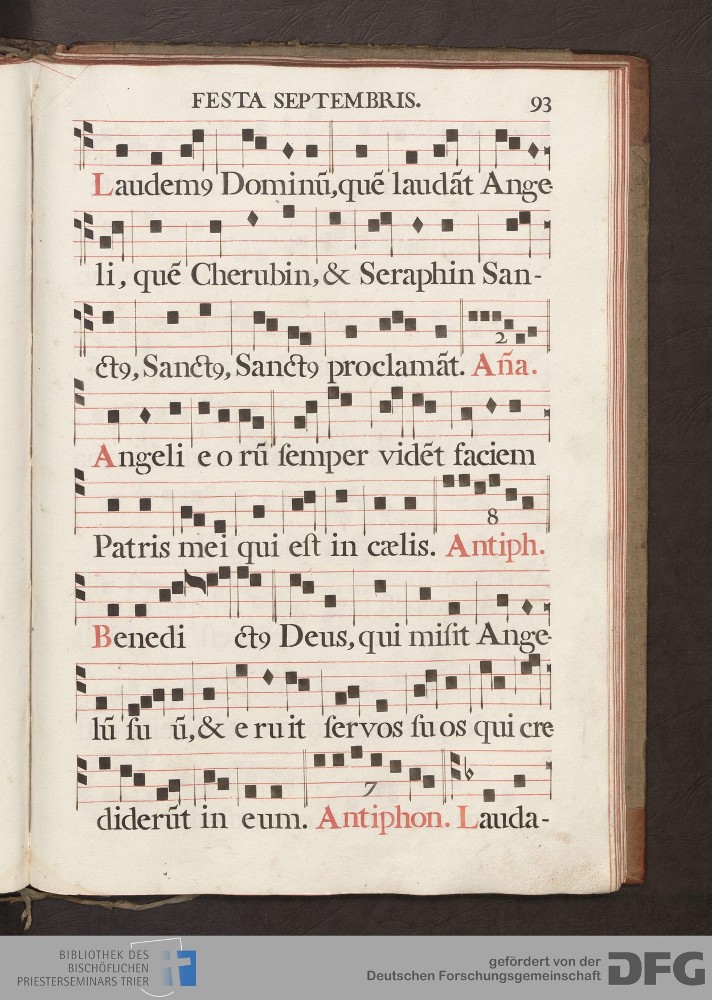 FESTA SEPTEMBRIS. 93
Laudemꝯ Dominū, quē laudāt Ange
li, quē Cherubin, & Seraphin San-
ctꝯ, Sanctꝯ, Sanctꝯ proclamāt. Aña.
2
Angeli eorū ſemper vidēt faciem
Patris mei qui eſt in cælis. Antiph.
8
Benedi ctꝯ Deus, qui miſit Ange-
lū ſu ū, & eruit ſervos ſuos qui cre
diderūt in eum. Antiphon. Lauda-
7
BIBLIOTHEK DES
BISCHÖFLICHEN
PRIESTERSEMINARS TRIER
gefördert von der
Deutschen Forschungsgemeinschaft DFG